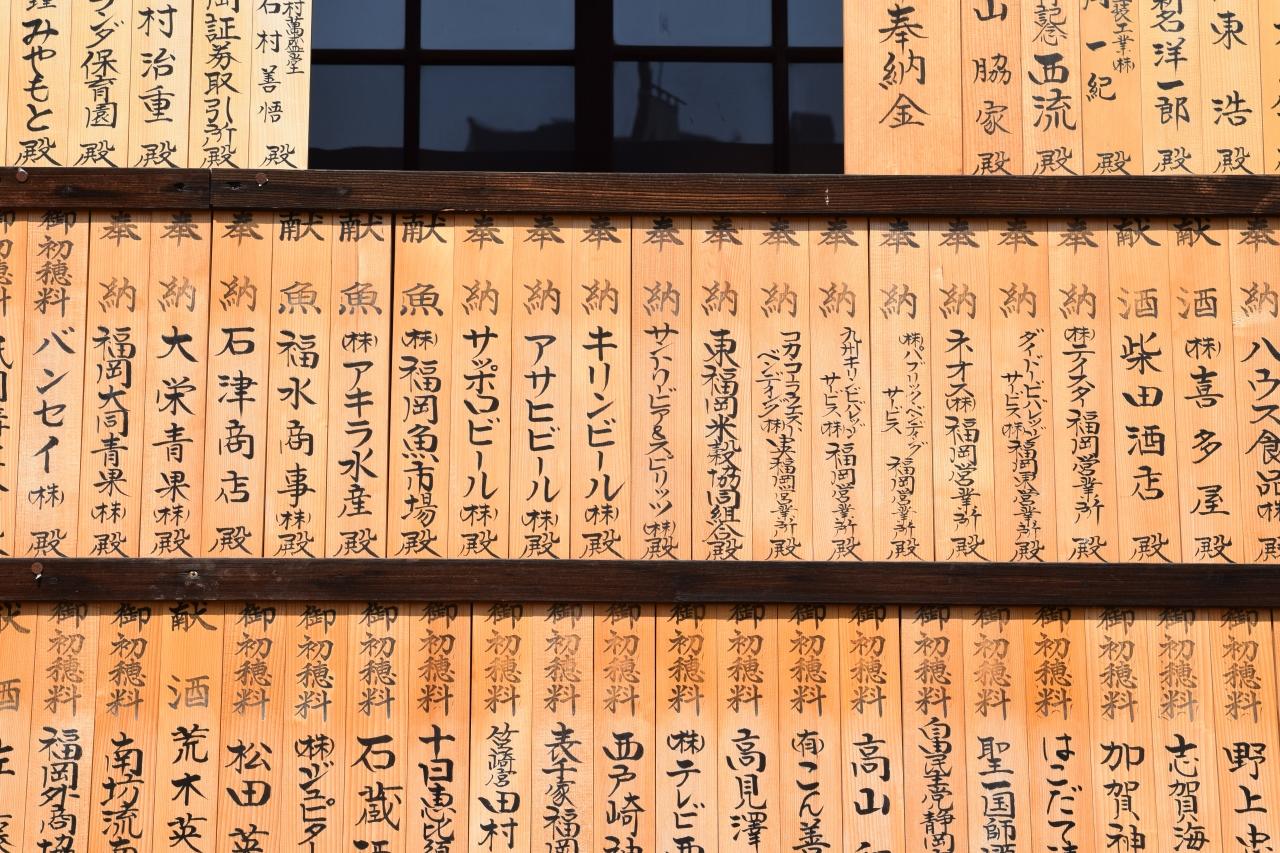 奉納金
山脇家殿
西流殿
一紀殿
洋一郎殿
東浩殿
村善悟殿
証券取引所殿
村治重殿
ンダ保育園殿
みやもと殿
奉納 ハウス食品㈱
献酒 ㈱喜多屋殿
献酒 柴田酒店殿
奉納 福岡営業所殿
奉納 ダイドービバレッジサービス㈱福岡東営業所殿
奉納 ネオス㈱福岡営業所殿
奉納 福岡営業所殿
奉納 九州キリンビバレッジサービス㈱福岡営業所殿
奉納 福岡営業所殿
奉納 東福岡米穀協同組合殿
奉納 サントリービア&スピリッツ㈱殿
奉納 キリンビール㈱殿
奉納 アサヒビール㈱殿
奉納 サッポロビール㈱殿
献魚 ㈱福岡魚市場殿
献魚 ㈱アキラ水産殿
献魚 福水商事㈱殿
奉納 石津商店殿
奉納 大栄青果㈱殿
奉納 福岡大同青果㈱殿
御初穂料 バンセイ㈱殿
御初穂料 野上忠
御初穂料 志賀海
御初穂料 加賀神
御初穂料 はこだて
御初穂料 聖一国師酒
御初穂料 静岡
御初穂料 高山
御初穂料 ㈲こん善
御初穂料 高見澤
御初穂料 ㈱テレビ西
御初穂料 西戸崎神
御初穂料 表千家福
御初穂料 筥崎宮田村
御初穂料 十日恵比須
御初穂料 石蔵酒
御初穂料 ㈱ジュピター
御初穂料 松田英
献酒 荒木英
御初穂料 南坊流南
御初穂料 福岡外商協